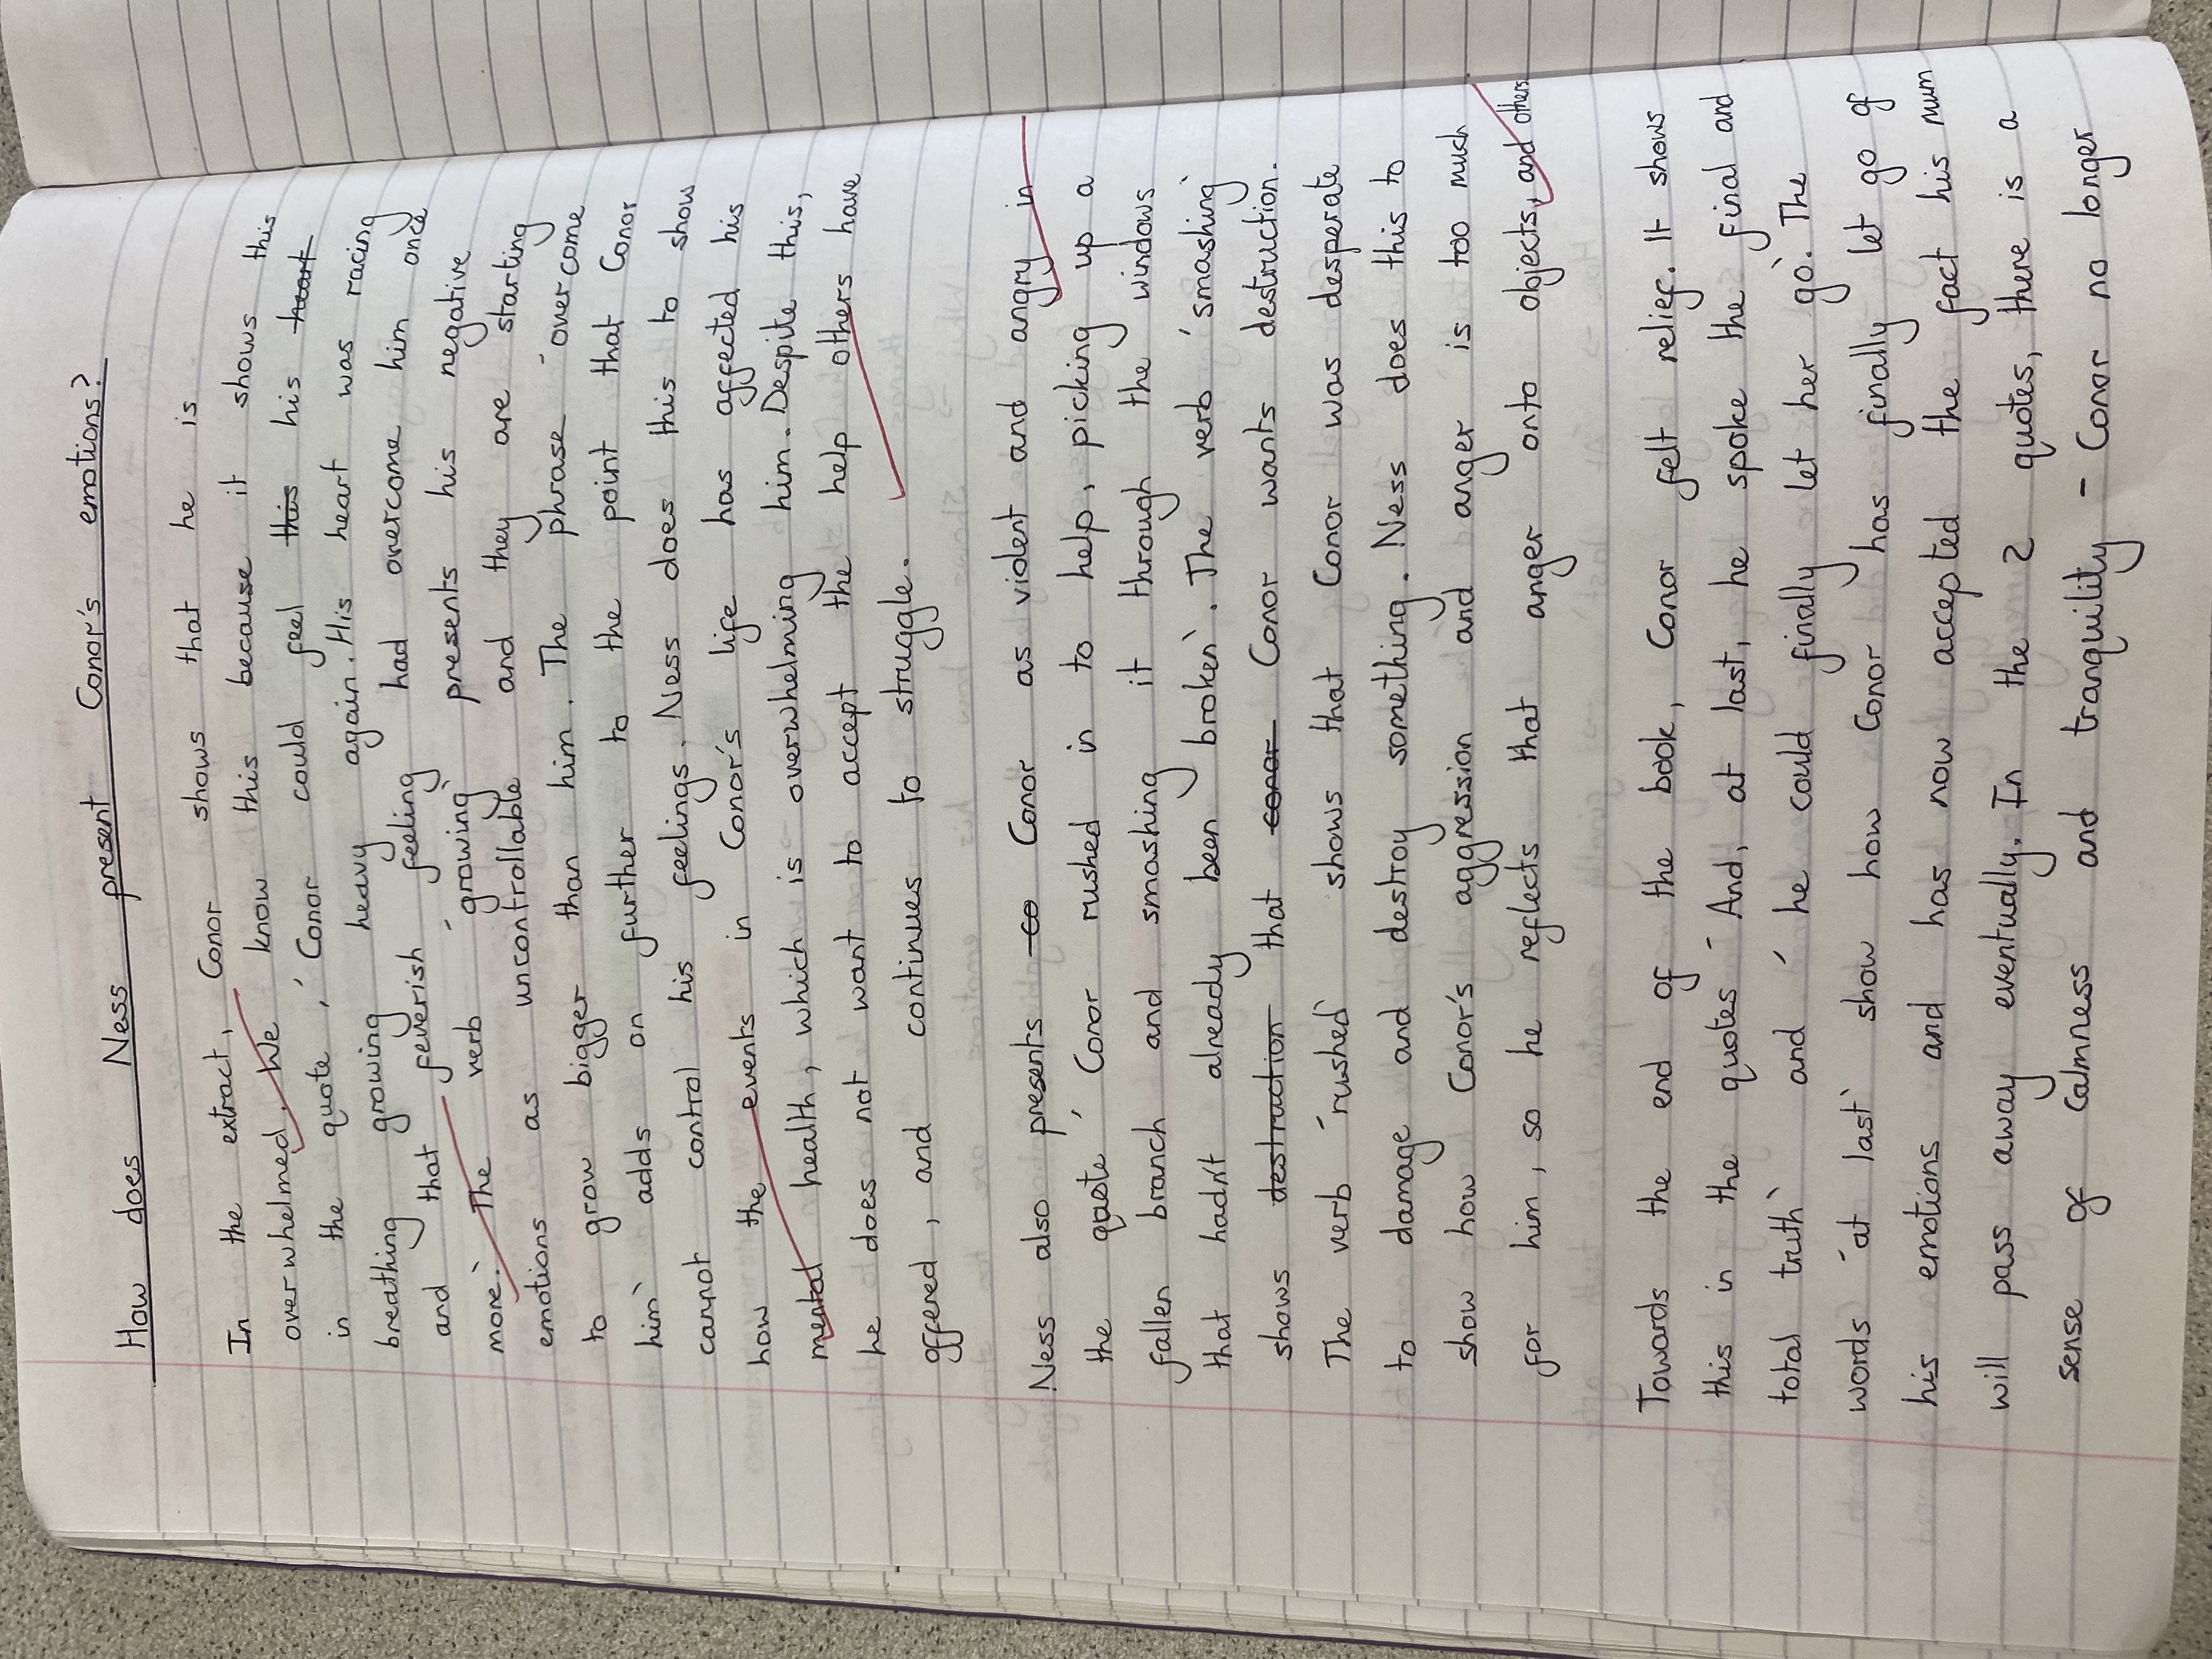 How does Ness present Conor's emotions?
In the extract, Conor shows that he is
overwhelmed. We know this because it shows this
in the quote, 'Conor could feel this his heart
breathing growing heavy again. His heart was racing
and that feverish feeling had overcome him once
more.' The verb 'growing' presents his negative
emotions as uncontrollable and they are starting
to grow bigger than him. The phrase 'overcome
him' adds on further to the point that Conor
cannot control his feelings. Ness does this to show
how the events in Conor's life has affected his
mental health, which is overwhelming him. Despite this,
he does not want to accept the help others have
offered, and continues to struggle.
Ness also presents co Conor as violent and angry in
the quote, 'Conor rushed in to help, picking up a
fallen branch and smashing it through the windows
that hadn't already been broken'. The verb 'smashing'
shows destruction that conor Conor wants destruction.
The verb 'rushed' shows that Conor was desperate
to damage and destroy something. Ness does this to
show how Conor's aggression and anger is too much
for him, so he reflects that anger onto objects, and others.
Towards the end of the book, Conor felt relief. It shows
this in the quotes 'And, at last, he spoke the final and
total truth' and 'he could finally let her go'. The
words 'at last' show how Conor has finally let go of
his emotions and has now accepted the fact his mum
will pass away eventually. In the 2 quotes, there is a
sense of calmness and tranquility - Conor no longer